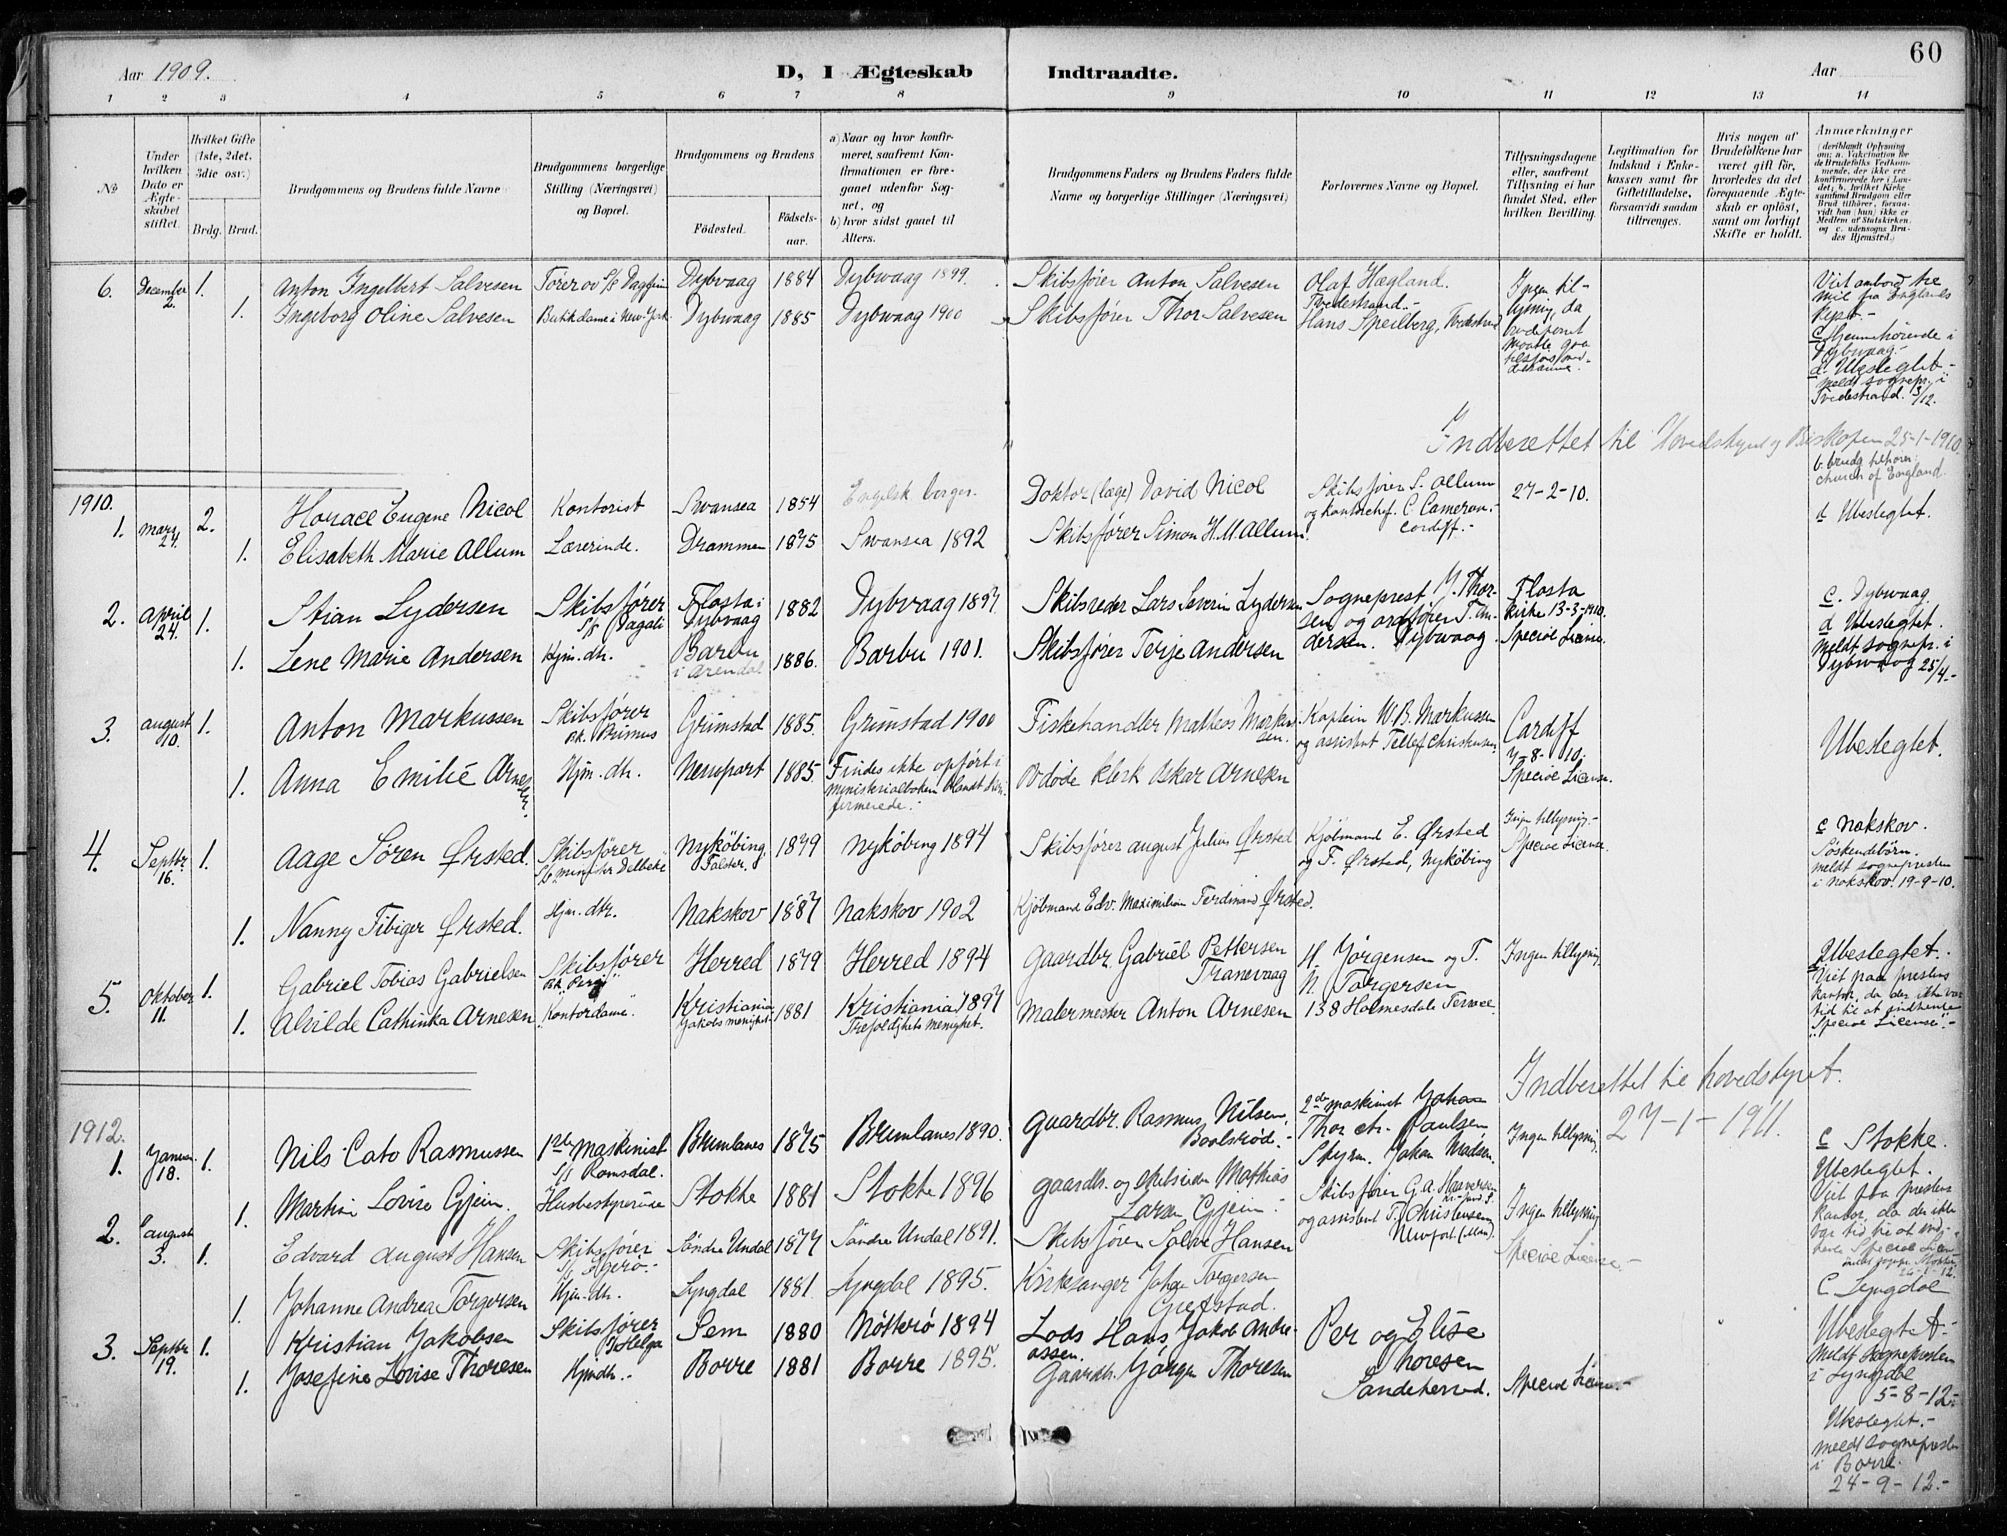 60
Aar 1909.
D, I Ægteskab Indtraadte.
Aar
1 2 3 4 5 6 7 8 9 10 11 12 13 14
No
Under hvilken Dato er Ægteskabet stiftet.
Hvilket Gifte (1ste, 2det, 3die osv.)
Brdg. Brud.
Brudgommens og Brudens fulde Navne
Brudgommens borgerlige Stilling (Næringsvei) og Bopæl.
Brudgommens og Brudens
Fødested.
Fødselsaar.
a) Naar og hvor konfirmeret, saafremt Konfirmationen er foregaaet udenfor Sognet, og
b) hvor sidst gaaet til Alters.
Brudgommens Faders og Brudens Faders fulde Navne og borgerlige Stillinger (Næringsvei)
Forlovernes Navne og Bopæl.
Tillysningsdagene eller, saafremt Tillysning ei har fundet Sted, efter hvilken Bevilling.
Legitimation for Indskud i Enkekassen samt for Giftetilladelse, forsaavidt saadan tiltrænges.
Hvis nogen af Brudefolkene har været gift før, hvorledes da det foregaaende Ægteskab er opløst, samt om lovligt Skifte er holdt.
Anmærkninger (deriblandt Oplysning om: a. Vakcination for de Brudefolks Vedkommende, der ikke ere konfirmerede her i Landet; b. hvilket Kirkesamfund Brudgom eller Brud tilhører, forsaavidt han (hun) ikke er Medlem af Statskirken, og c. udensogns Brudes Hjemsted.)
6. December 2. 1. Anton Ingelbert Salvesen Fører ov S/S Dagheim Dybvaag 1884 Dybvaag 1899. Skibsfører Anton Salvesen Olaf Hægland. Tvedestrand.-
1. Ingeborg Oline Salvesen Butikdame i New York Dybvaag 1885 Dybvaag 1900 Skibsfører Thor Salvesen Hans Speilberg, Tvedestrand
Ingen tillysning, da brudeparet maatte gaa
Viet ombord tre mil fra Englands kyst.-
c Hjemmehørende i Dybvaag.-
d. Ubeslegtet.-
meldt sognepr. i Tvedestrand. 3/12.
Indberettet til Hovedstyret og Biskopen 25-1-1910.
1910.
1. Mars 24. 2. Horace Eugene Nicol Kontorist Swansea 1854 Engelsk borger. Doktor (læge) David Nicol Skibsfører S. Allum og Kontorchef. C Cameron. Cardiff.- 27-2-10.
b. brudg tilhører: church of England.
d Ubeslegtet.
1. Elisabeth Marie Allum Lærerinde. Drammen 1875 Swansea 1892 Skibsfører Simon H.M. Allum.
2. April 24. 1. Stian Lydersen Skibsfører S/S Dagali Flosta i Dybvaag 1882 Dybvaag 1897. Skibsreder Lars Severin Lydersen Sogneprest Y. Thorsen og ordfører T. Andersen. Dybvaag. Flosta kirke 13-3-1910. Special License.
c. Dybvaag.
d Ubeslegtet.
meldt sognepr. i Dybvaag 25/4.-
1. Lene Marie Andersen Hjm. dtr. Barbu i Arendal 1886. Barbu 1901. Skibsfører Terje Andersen
3. August 10. 1. Anton Markussen Skibsfører Bk. Primus Grimstad 1885. Grimstad 1900 Fiskehandler Matteos Markussen. Kaptein W.B. Markussen og assistent Tellef Christensen Cardiff 7-8-10. Special License.
Ubeslegtet.
1. Anna Emilie Arnesen. Hjm. dtr. Newport 1885 Findes ikke opført i ministerialboken blandt konfirmerede. Oskar Arnesen
4. Septbr. 16. 1. Aage Søren Ørsted. Skibsfører Nykøbing, Falster. 1879 Nykøbing 1894 Skibsfører August Julius Ørsted Kjøbmand E. Ørsted og F. Ørsted, Nykøbing Ingen tillysning.- Special License.
c Nakskov.
Søskendebørn.
meldt sognepresten i Nakskov. 19-9-10.
1. Nanny Tibiger Ørsted. Hjm. dtr. Nakskov 1887 Nakskov 1902 Kjøbmand Edv. Maximilian Ferdinand Ørsted.
5. Oktober 11. 1. Gabriel Tobias Gabrielsen Skibsfører Herred 1879 Herred 1894 Gaardbr. Gabriel Pettersen Tranevaag H. Jørgensen og T. N. Torgersen Ingen tillysning.
1. Alvilde Cathinka Arnesen "Kontordame" Kristiania Jakobs menighet. 1881 Kristiania 1897 Trefoldighets menighet. Malermester Anton Arnesen 138 Holmesdale Terrace.
Ubeslegtet.
Viet paa prestens kontor, da der ikke var tid til at indhente "Special License".-
Indberettet til hovedstyret.
27-1-1911.
1912.
1. Januar 18. 1. Nils Cato Rasmussen 1ste maskinist S/S Romsdal. Brunlanes 1875 Brunlanes 1890. Gaardbr. Rasmus Nilsen, Boolsrød.- 2den maskinist Johan Thor chr. Paulsen Styrm. Johan Madsen. Ingen tillysning.
c Stokke.
Ubeslegtet.
Viet paa prestens kontor, da der ikke var tid til at indhente Special License
1. Martine Lovise Gjein. Husbestyrerinde Stokke 1881 Stokke 1896 Gaardbr. og Mathias Larsen Gjein.
2. August 3. 1. Edvard August Hansen Skibsfører S/S Egerø.- Søndre Undal 1877 Søndre Undal 1891. Skibsfører Salve Hansen Skibsfører G.A. Halvorsen og assistent T. Christensen Newport (Mon). Ingen tillysning Special License.-
c Lyngdal
Ubeslegtet.-
Meldt sognepresten i Lyngdal 5-8-12.-
1. Johanne Andrea Torgersen Hjm. dtr. Lyngdal 1881. Lyngdal 1895. Kirkesanger Johan Torgersen Grefstad.
3. Septbr. 19. 1. Kristian Jakobsen Skibsfører S/S Helga Sem 1880 Nøtterø 1894 Lods Hans Jakob Andreassen. Per og Elise Thoresen Sandeherred. Special License.-
1. Josefine Lovise Thoresen Hjmdtr.- Borre 1881 Borre 1895. Gaardbr. Jørgen Thoresen
Ubeslegtet.-
meldt sognepresten i Borre.
24-9-12.-